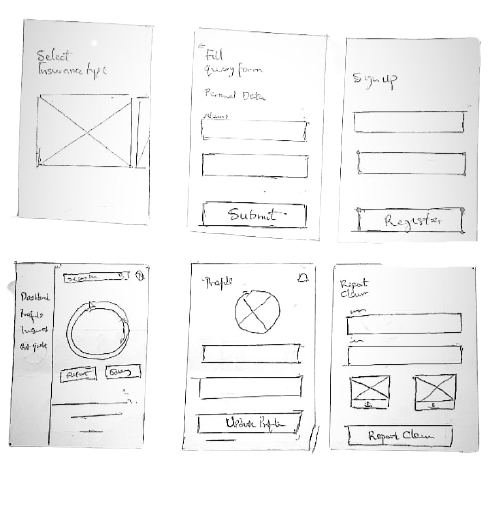 Select
Insurance type
Fill
query form
Personal Data
Name
Submit
Sign up
Register
Dashboard
Profile
Search
Report
Profile
Update Profile
Report
Claim
Report Claim